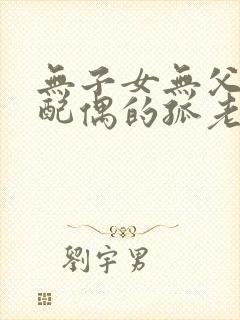 無子女無父
配偶的孤老
劉宇男